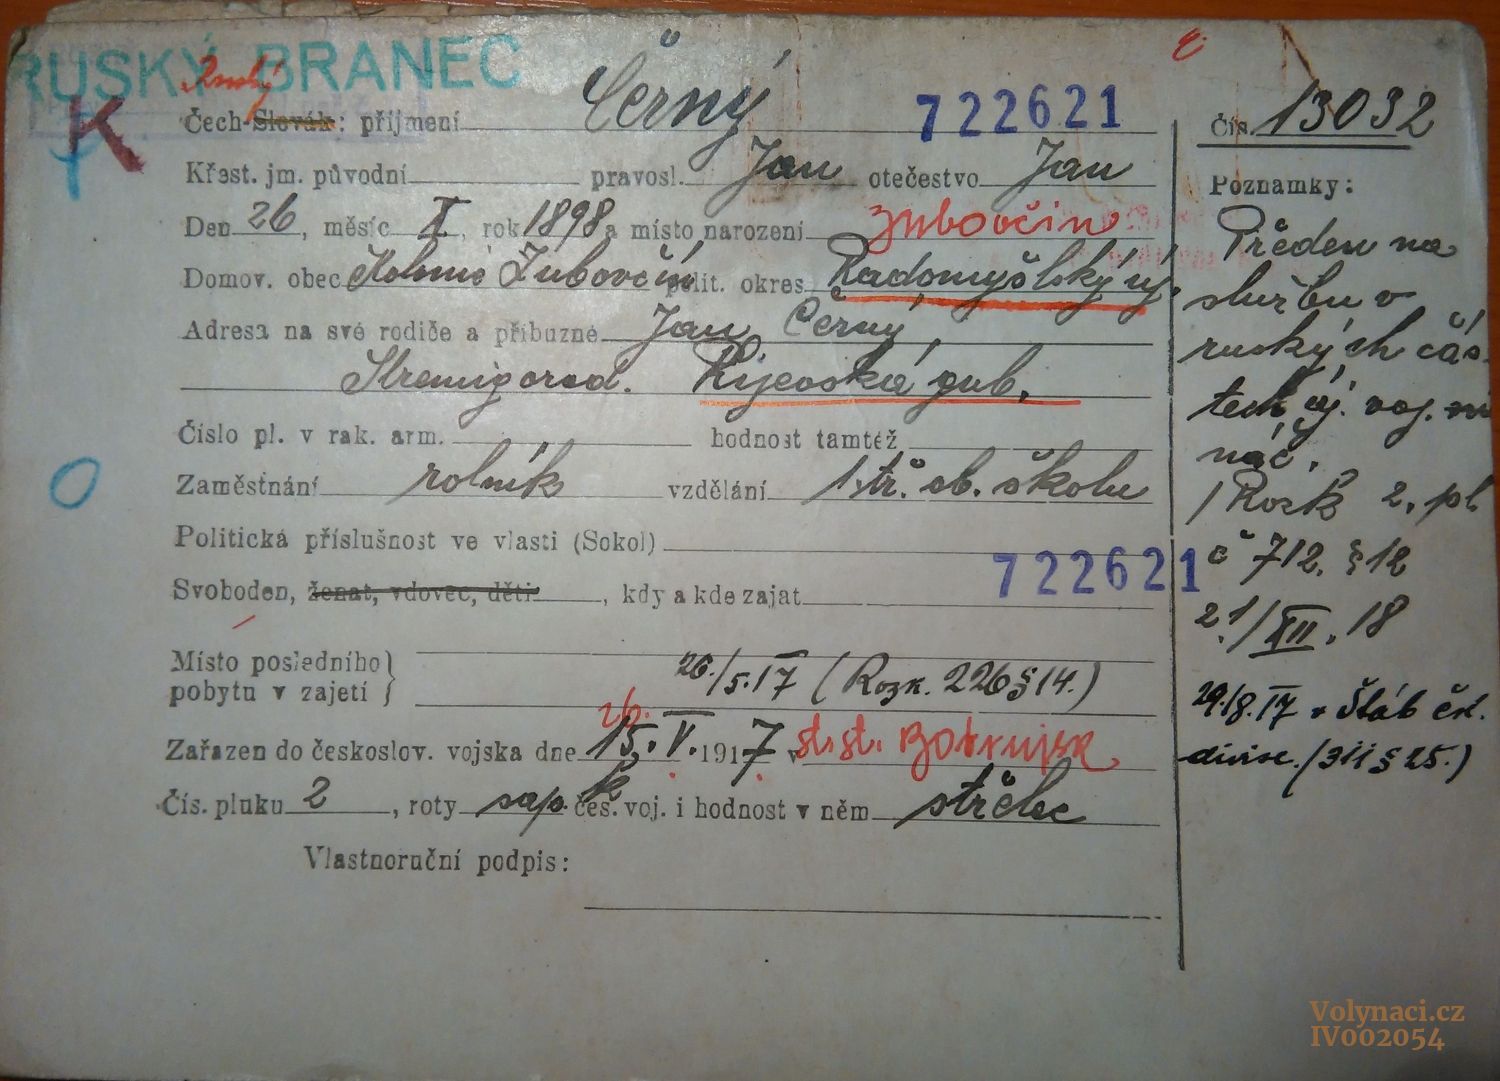 RUSKÝ BRANEC
K
Ruský
Čech-Slovák: příjmení Černý 722621
Křest. jm. původní pravosl. Jan otečestvo Jan
Den 26, měsíc X, rok 1898 a místo narození Zubovčin
Domov. obec Kolonie Zubovčin polit. okres Radomyšlský új.
Adresa na své rodiče a příbuzné Jan Černý,
Stremigorod. Kijevská gub.
Číslo pl. v rak. arm. hodnost tamtéž
Zaměstnání rolník vzdělání 1 tř. ob. školu
Politická příslušnost ve vlasti (Sokol)
722621
Svoboden, ženat, vdovec, děti, kdy a kde zajat
Místo posledního pobytu v zajetí } 26./5.17 (Rozk. 226 § 14.)
26.
Zařazen do českoslov. vojska dne 15. V. 1917 v st. st. Bobrujsk
Čís. pluku 2, roty sap. k čes. voj. i hodnost v něm střelec
Vlastnoruční podpis:
Čís. 13032
Poznamky:
Předen na
službu v
ruských čás-
tech új. voj.
náč.
/Rozk 2. pl
č 712. § 12
21/XII. 18
29./8.17 v Štáb čsl.
divise. (311 § 25.)
Volynaci.cz
IV002054